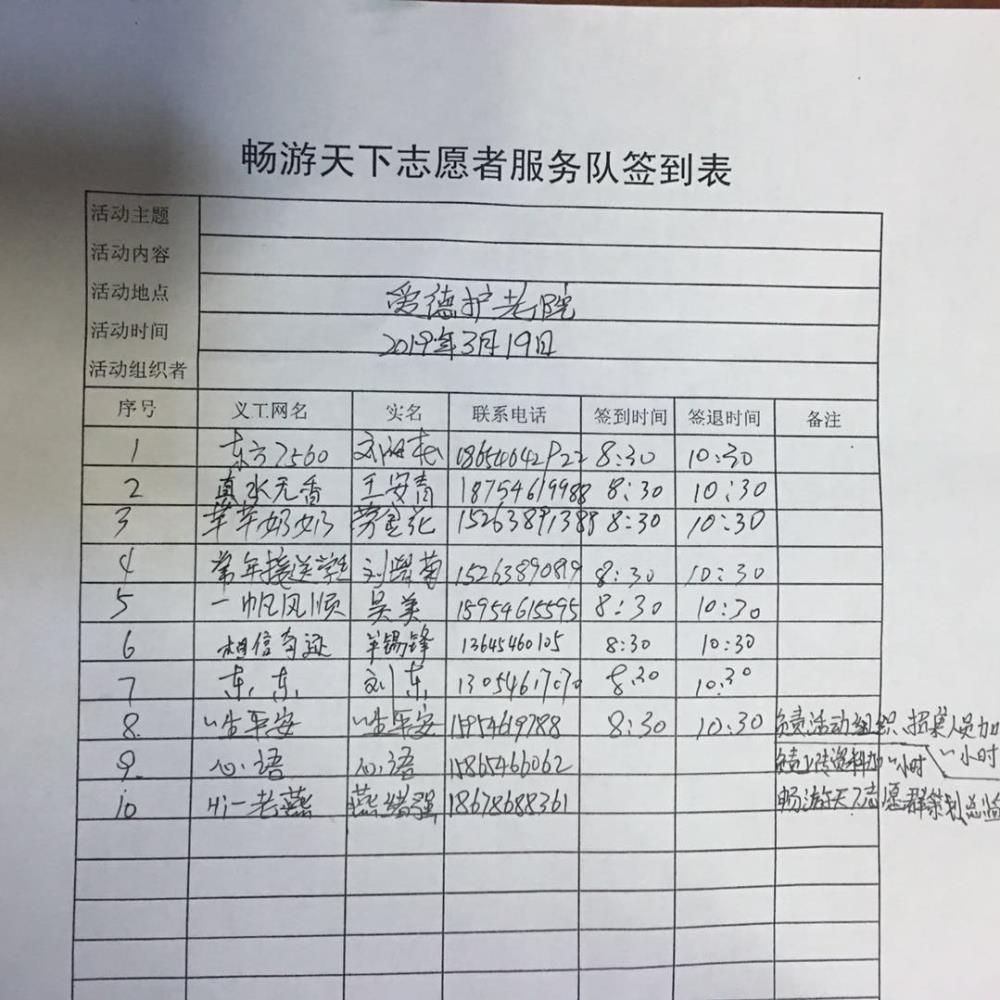 畅游天下志愿者服务队签到表
活动主题
活动内容
活动地点 爱德护老院
活动时间 2019年3月19日
活动组织者
序号 义工网名 实名 联系电话 签到时间 签退时间 备注
1 东方7560 8:30 10:30
2 真水无香 王安青 18754619988 8:30 10:30
3 苹苹奶奶 劳金花 15263891388 8:30 10:30
4 常年接送学生 15263890819 8:30 10:30
5 一帆风顺 吴美 15954615595 8:30 10:30
6 相信奇迹 13645460105 8:30 10:30
7 东东 刘东 8:30 10:30
8. 一生平安 一生平安 15954619788 8:30 10:30 负责活动组织、招募人员加一小时
9. 心语 心语 15865466062 负责上传资料加一小时
10 Hi一老燕 燕绪强 18678688361 畅游天下志愿群策划总监